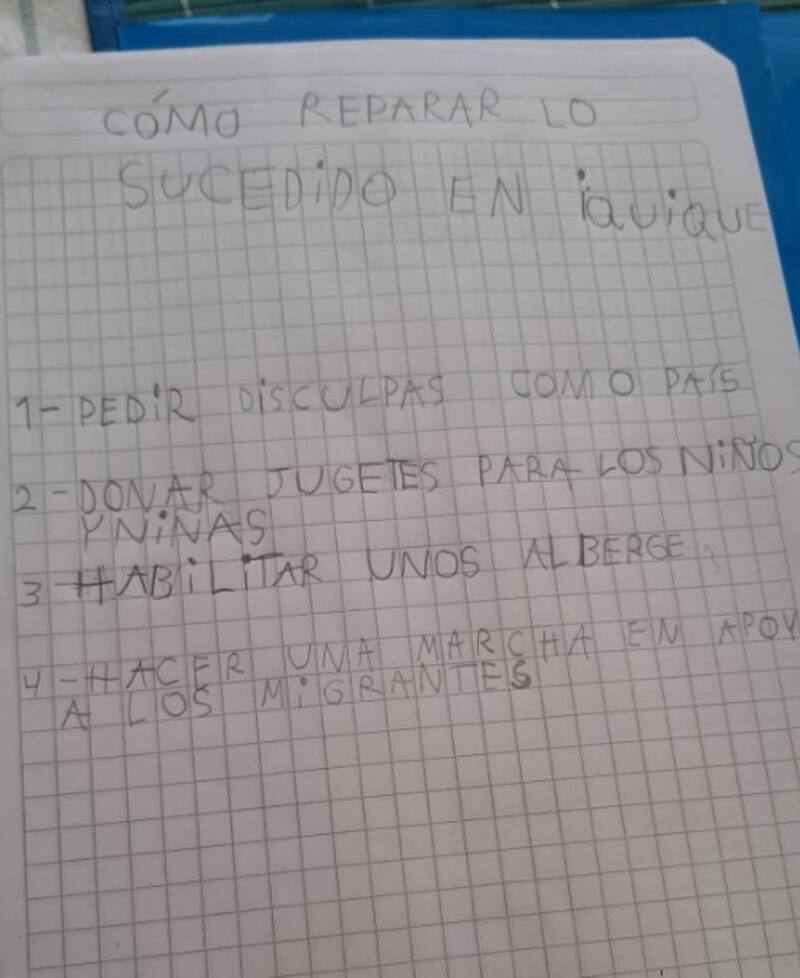 CÓMO REPARAR LO
SUCEDIDO EN iQUiQUE
1- PEDiR DiSCULPAS COMO PAÍS
2 - DONAR JUGETES PARA LOS NiÑOS
Y NiÑAS
3 - HABiLiTAR UNOS ALBERGE
4 - HACER UNA MARCHA EN APOY
A LOS MiGRANTES